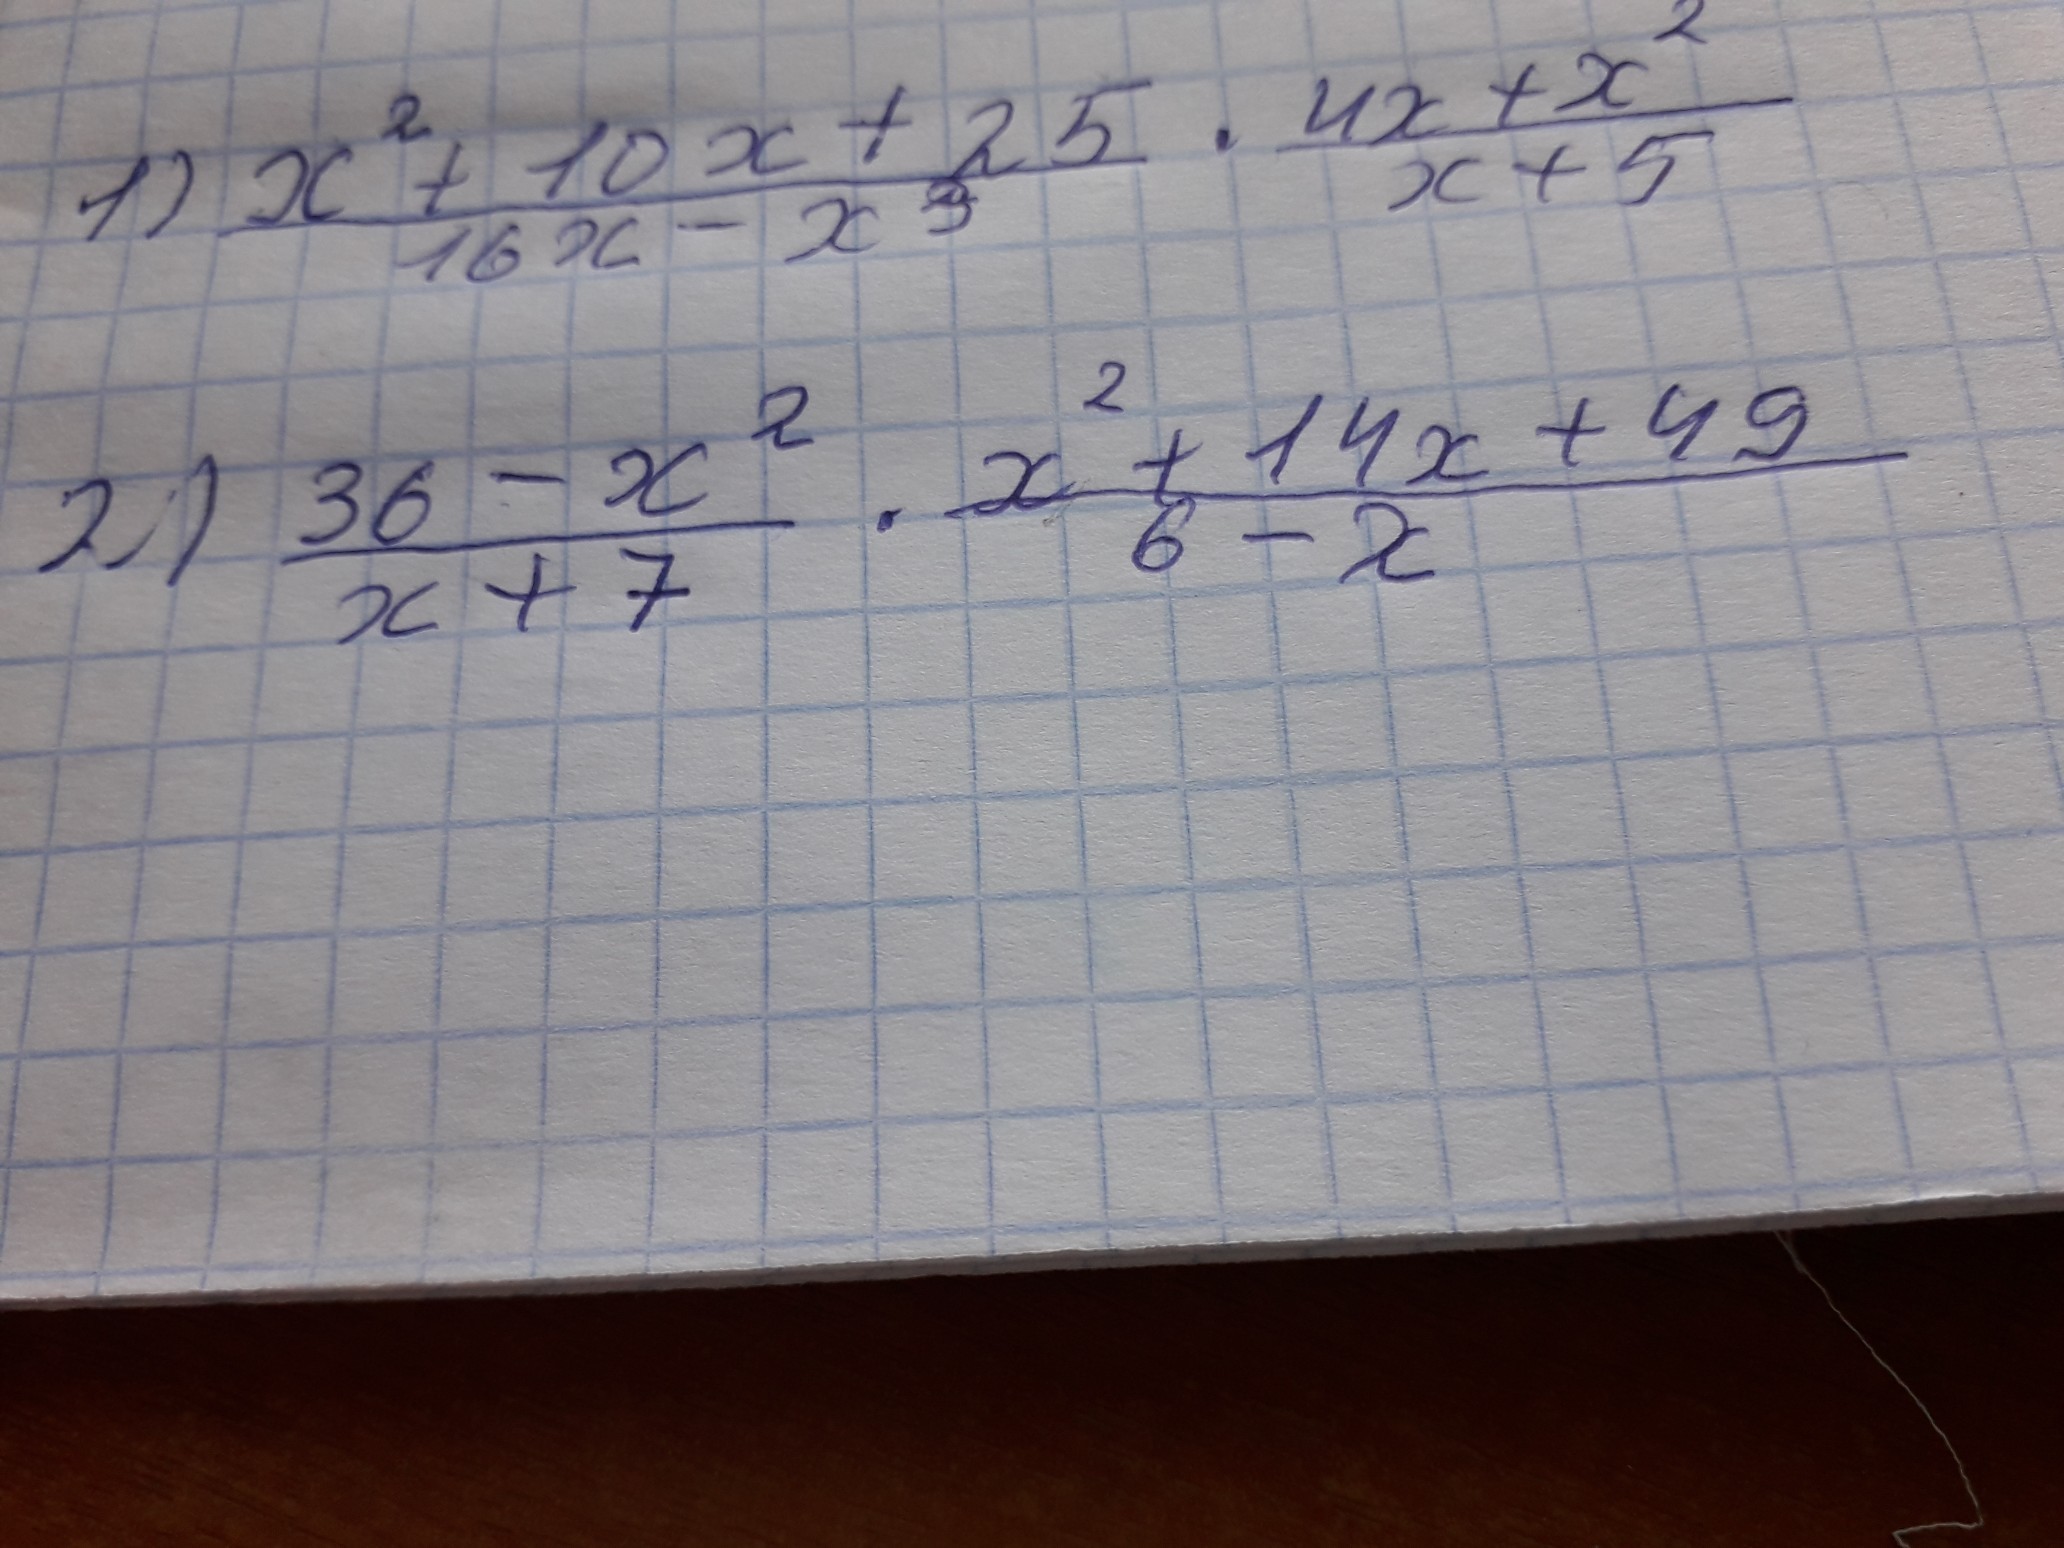 1) x² + 10x + 25 / 16x - x³ · 4x + x² / x + 5
2) 36 - x² / x + 7 · x² + 14x + 49 / 6 - x